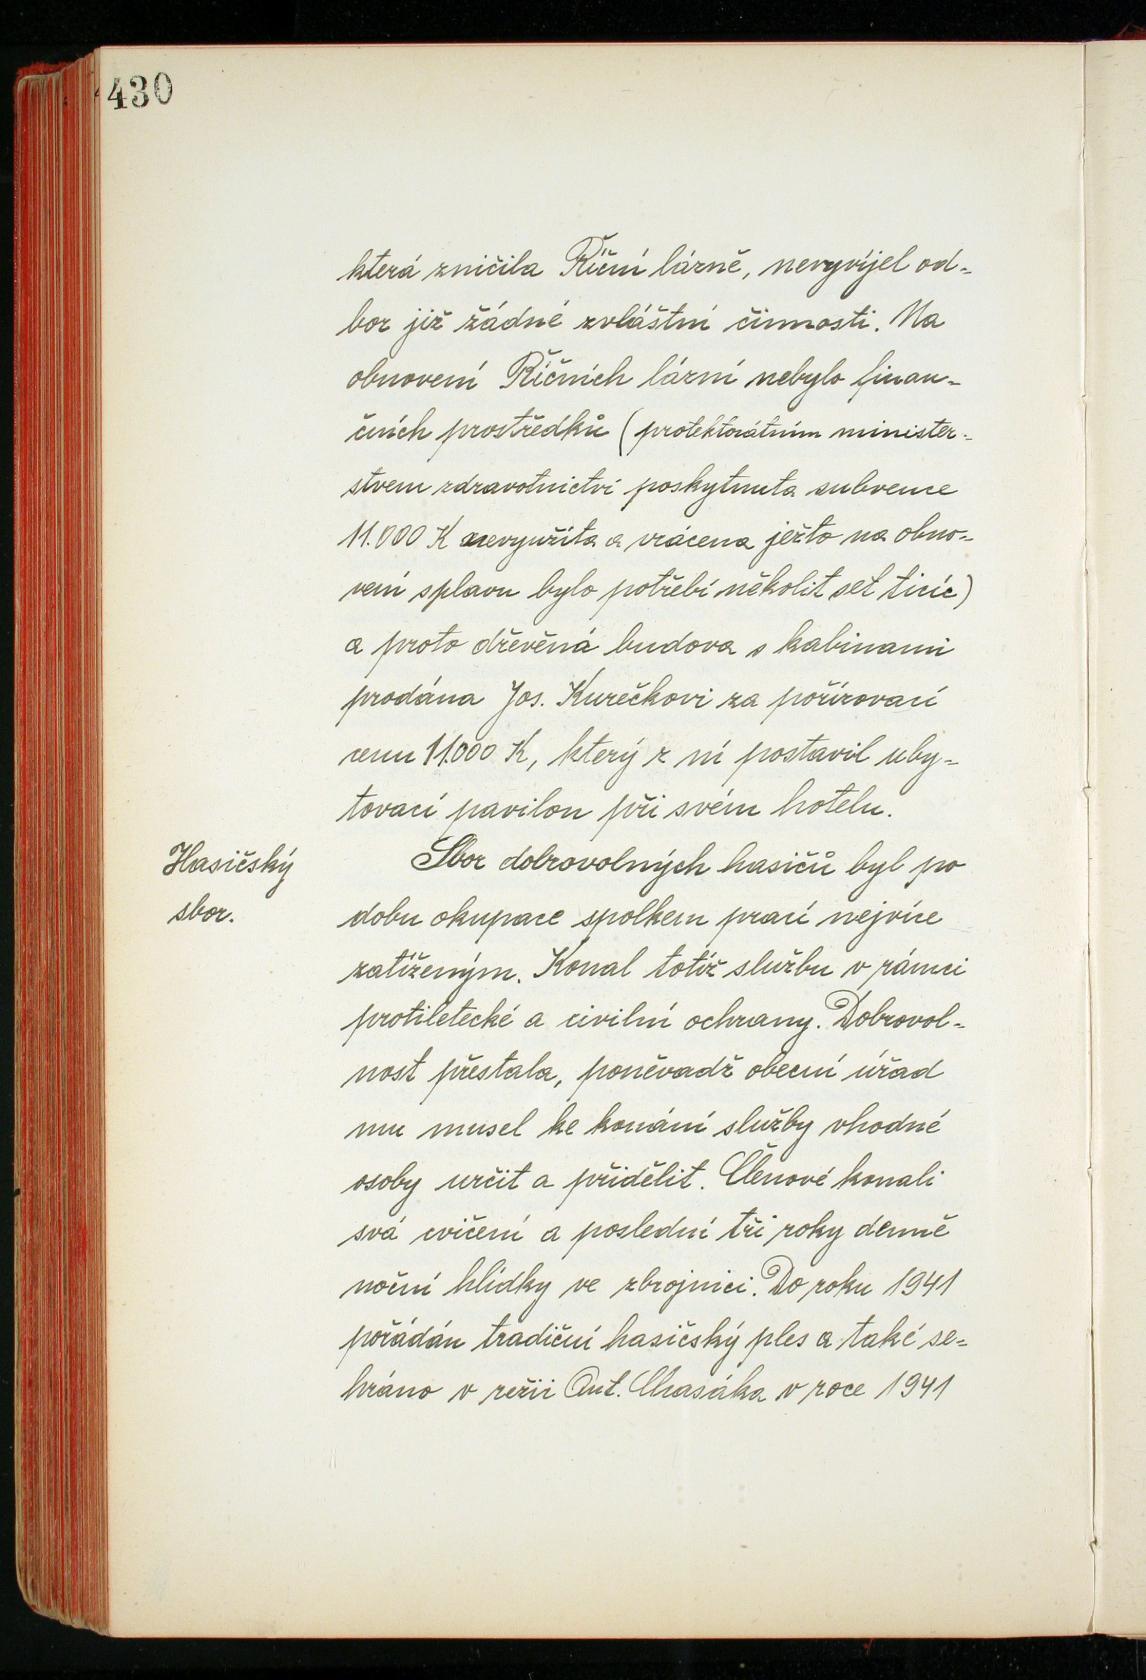 430
která zničila Říční lázně, nevyvíjel od-
bor již žádné zvláštní činnosti. Na
obnovení Říčních lázní nebylo finan-
čních prostředků (protektorátním minister-
stvem zdravotnictví poskytnuta subvence
11.000 K nevyužita a vrácena ježto na obno-
vení splavu bylo potřebí několit set tisíc)
a proto dřevěná budova s kabinami
prodána Jos. Kurečkovi za pořizovací
cenu 11.000 K, který z ní postavil uby-
tovací pavilon při svém hotelu.
Hasičský
sbor.
Sbor dobrovolných hasičů byl po
dobu okupace spolkem prací nejvíce
zatíženým. Konal totiž službu v rámci
protiletecké a civilní ochrany. Dobrovol-
nost přestala, poněvadž obecní úřad
mu musel ke konání služby vhodné
osoby určit a přidělit. Členové konali
svá cvičení a poslední tři roky denně
noční hlídky ve zbrojnici. Do roku 1941
pořádán tradiční hasičský ples a také se-
hráno v režii Ant. Chasáka v roce 1941